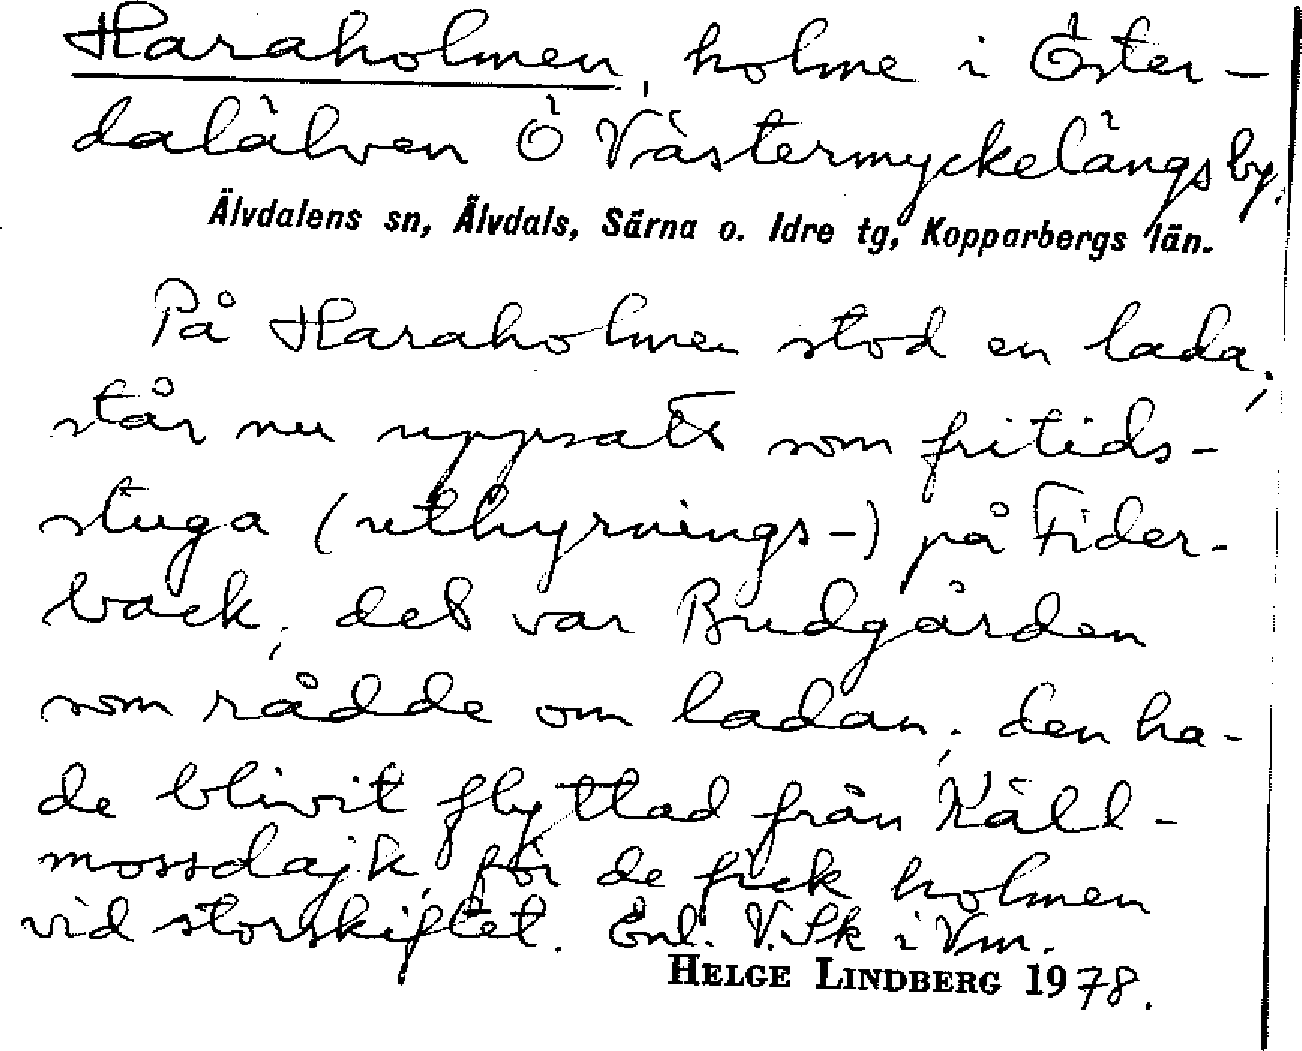 Haraholmen, holme i Öster-
dalälven Ö Västermyckelängs by.
Älvdalens sn, Älvdals, Särna o. Idre tg, Kopparbergs län.
På Haraholmen stod en lada;
står nu uppsatt som fritids-
stuga (uthyrnings-) på Fider-
back; det var Budgården
som rådde om ladan; den ha-
de blivit flyttad från Käll-
mossdajk, för de fick holmen
vid storskiftet. Enl. V.Sk i Vm.
HELGE LINDBERG 1978.